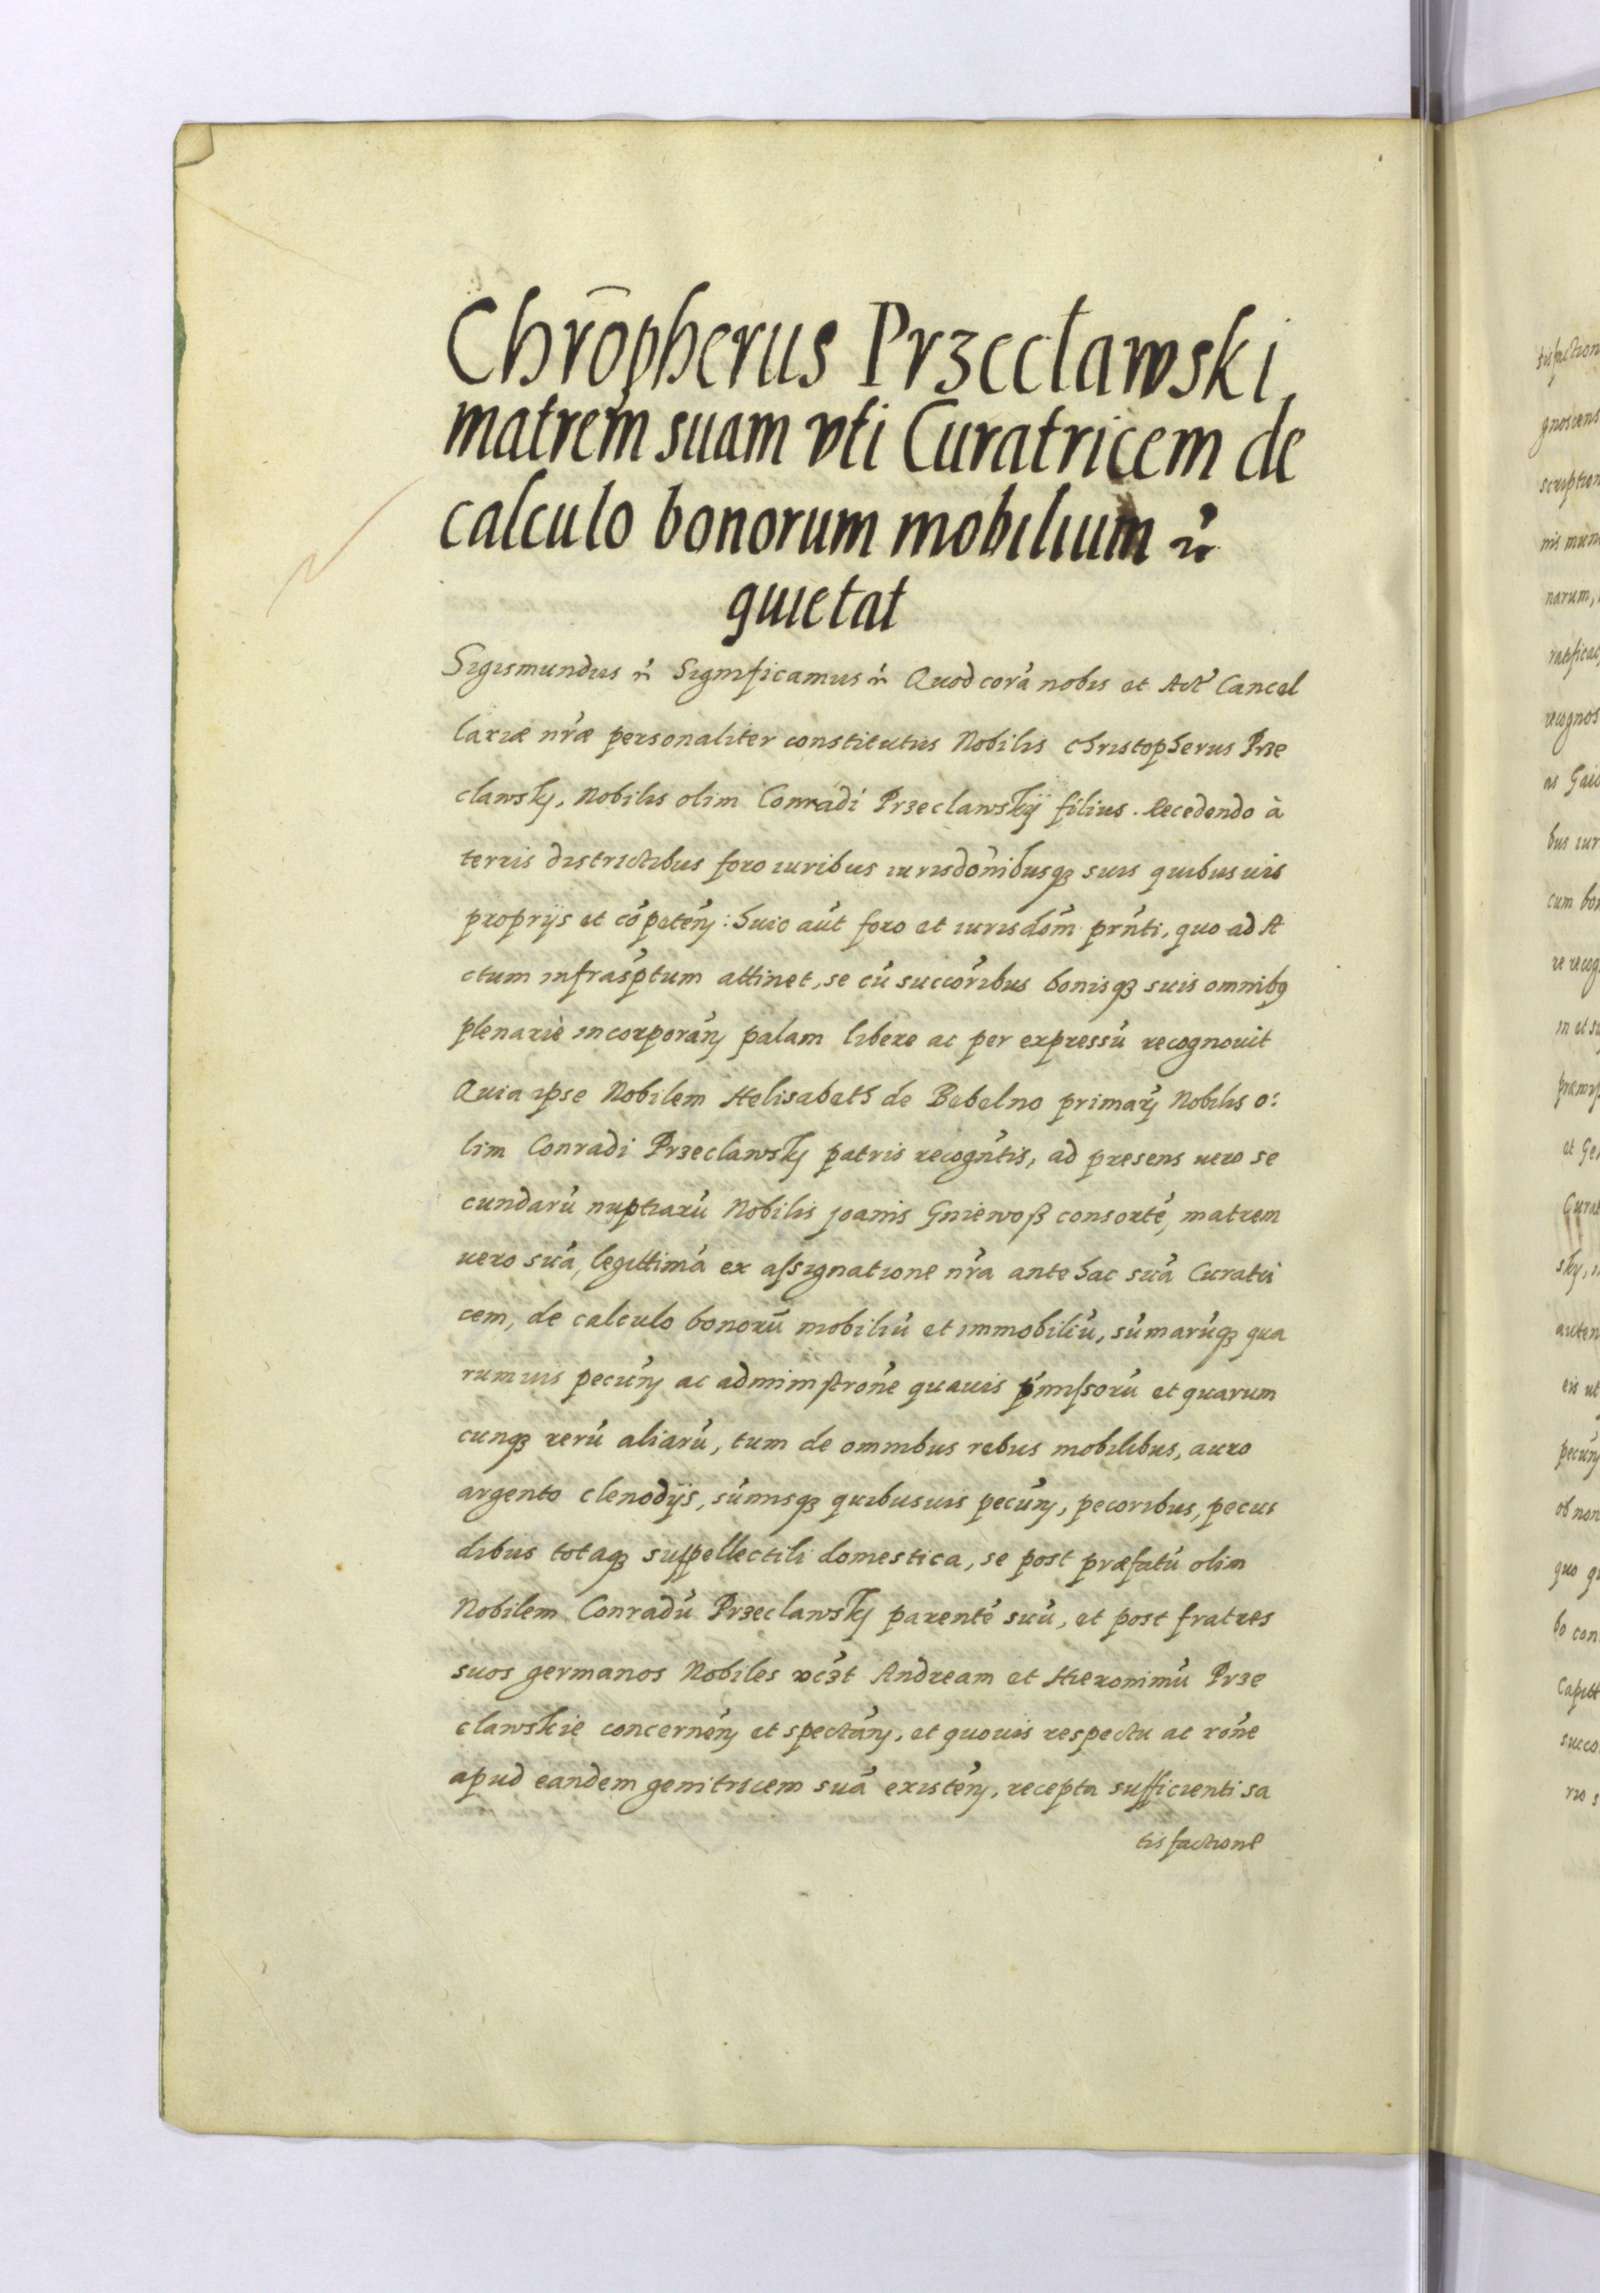 Chrōpherus Przecławski
matrem suam vti Curatricem de
calculo bonorum mobilium
quietat
Sigismundus Significamus Quod corā nobis et Act Cancel
lariæ nr̃æ personaliter constitutus Nobilis Christopherus Prze
clawsky, Nobilis olim Conradi Przeclawskÿ filius. Recedendo à
terris districtibus foro iuribus iurisdoñibusq₃ suis quibusuis
proprijs et cōpeteñ: huic aūt foro et iurisdoñi prñti, quo ad A
ctum infrasptum attinet, se cū succoribus bonisq₃ suis omnibq
plenariè incorporañ palam libere ac per expressū recognouit
Quia ipse Nobilem Helisabeth de Bebelno primarū Nobilis o:
lim Conradi Przeclawsky patris recogñtis, ad presens uero se
cundarū nuptiarū Nobilis Joanis Gniewoß consortē, matrem
uero suā, legittimā ex assignatione nr̃a ante hac suā Curatri
cem, de calculo bonorū mobiliū et immobiliū, sūmarūq₃ qua
rumuis pecuñ ac administrōne quauis pmissorū et quarum
cunq₃ rerū aliarū, tum de omnibus rebus mobilibus, auro
argento clenodijs, sūmisq₃ quibusuis pecuñ, pecoribus, pecu
dibus totaq₃ suppellectili domestica, se post præfatū olim
Nobilem Conradū Przeclawsky parentē suū, et post fratres
suos germanos Nobiles Andream et Hieronimū Prze
clawskie concerneñ et spectañ, et quouis respectu ac rōne
apud eandem genitricem suā existeñ, recepta sufficienti sa
tisfactione